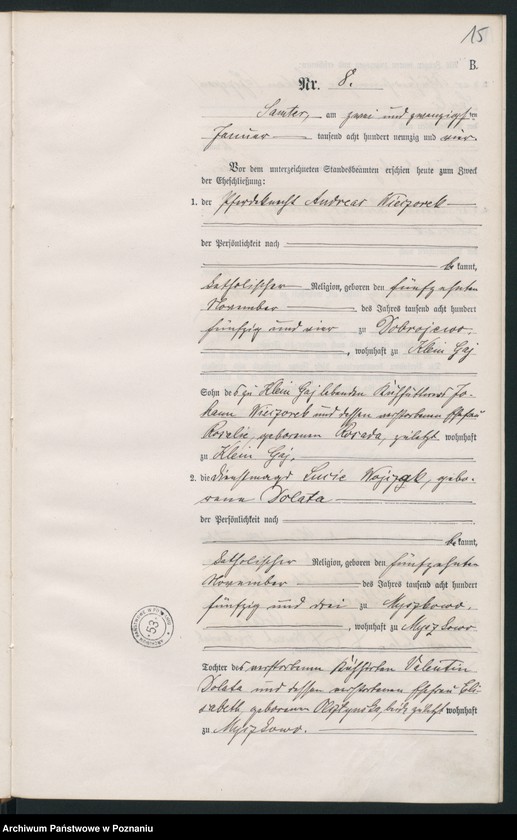 15
B.
Nr. 8.
Samter, am zwei und zwanzigsten
Januar tausend acht hundert neunzig und vier.
Vor dem unterzeichneten Standesbeamten erschien heute zum Zweck
der Eheschließung:
1. der Pferdeknecht Andreas Wieczorek
der Persönlichkeit nach
be kannt,
katholischer Religion, geboren den fünfzehnten
November des Jahres tausend acht hundert
fünfzig und vier zu Dobrojewo
, wohnhaft zu Klein Gaj
Sohn des zu Klein Gaj lebenden Kuhfütterers Jo-
hann Wieczorek und dessen verstorbenen Ehefrau
Rosalie, geborenen Kosada, zuletzt wohnhaft
zu Klein Gaj.
2. die Dienstmagd Lucie geb-
orene Dolata
der Persönlichkeit nach
be kannt,
katholischer Religion, geboren den fünfzehnten
November des Jahres tausend acht hundert
fünfzig und drei zu Myszkowo.
, wohnhaft zu Myszkowo
Tochter des verstorbenen Kuhhirten Valentin
Dolata und dessen verstorbenen Ehefrau Eli-
sabeth geborenen beide zuletzt wohnhaft
zu Myszkowo.
53
Archiwum Państwowe w Poznaniu